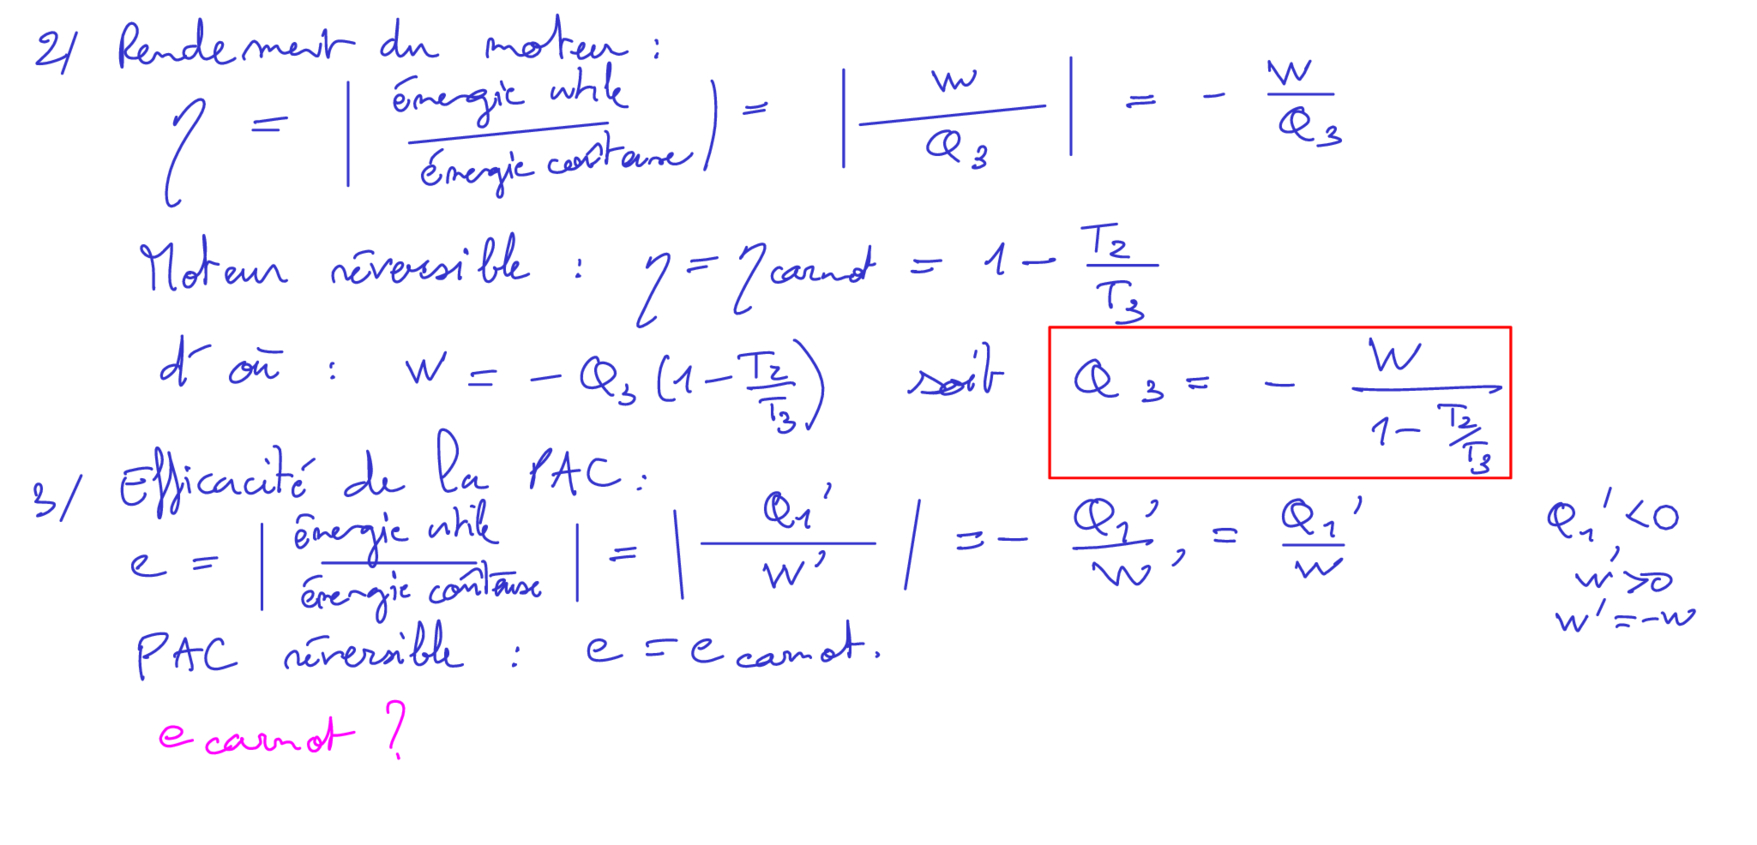 2/ Rendement du moteur :
η = | énergie utile / énergie coûteuse | = | W / Q3 | = - W / Q3
Moteur réversible : η = η carnot = 1 - T2 / T3
d'où : W = - Q3 (1 - T2 / T3) soit Q3 = - W / (1 - T2/T3)
3/ Efficacité de la PAC :
e = | énergie utile / énergie coûteuse | = | Q1' / W' | = - Q1' / W' = Q1' / W
Q1' < 0
W' > 0
W' = -W
PAC réversible : e = e carnot.
e carnot ?